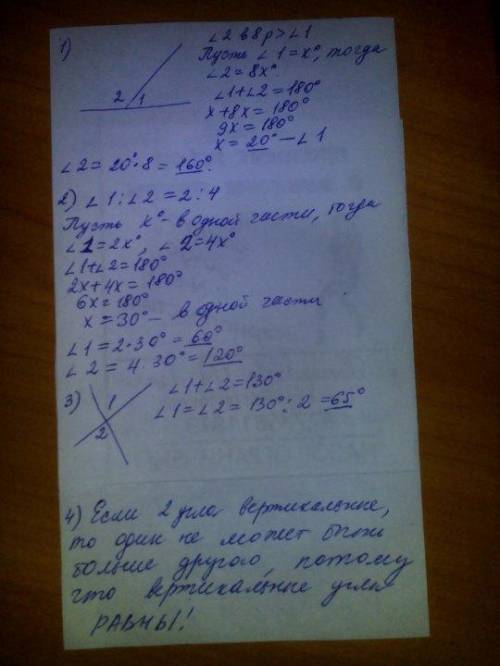 1)
∠2 в 8 р > ∠1
Пусть ∠1 = x°, тогда
∠2 = 8x°.
∠1+∠2=180°
x+8x=180°
9x=180°
x=20° — ∠1
2 1
∠2=20°·8=160°.
2) ∠1:∠2=2:4
Пусть x° - в одной части, тогда
∠1=2x°, ∠2=4x°
∠1+∠2=180°
2x+4x=180°
6x=180°
x=30° — в одной части
∠1=2·30°=60°
∠2=4·30°=120°
3)
1
2
∠1+∠2=130°
∠1=∠2=130°:2=65°
4) Если 2 угла вертикальные,
то один не может быть
больше другого, потому
что вертикальные углы
РАВНЫ!